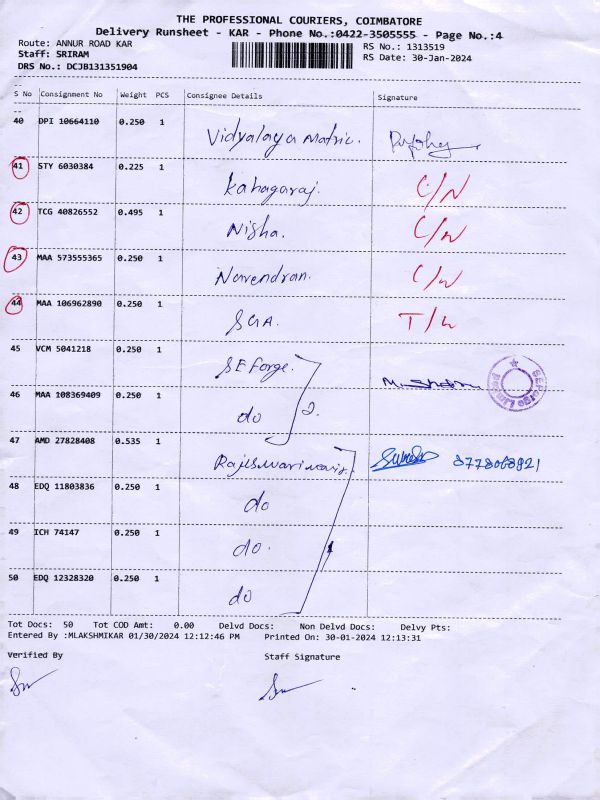 THE PROFESSIONAL COURIERS, COIMBATORE
Delivery Runsheet - KAR - Phone No.:0422-3505555 - Page No.:4
Route: ANNUR ROAD KAR RS No.: 1313519
Staff: SRIRAM RS Date: 30-Jan-2024
DRS No.: DCJB131351904
S No Consignment No Weight PCS Consignee Details Signature
40 DPI 10664110 0.250 1 Vidyalaya Matric.
41 STY 6030384 0.225 1 C/N
42 TCG 40826552 0.495 1 Nisha. C/N
43 MAA 573555365 0.250 1 Narendran. C/N
44 MAA 106962890 0.250 1
45 VCM 5041218 0.250 1 SE Forge.
46 MAA 108369409 0.250 1 do 2.
47 AMD 27828408 0.535 1 Rajeswari
48 EDQ 11803836 0.250 1 do
49 ICH 74147 0.250 1 do.
50 EDQ 12328320 0.250 1 do
Tot Docs: 50 Tot COD Amt: 0.00 Delvd Docs: Non Delvd Docs: Delvy Pts:
Entered By :MLAKSHMIKAR 01/30/2024 12:12:46 PM Printed On: 30-01-2024 12:13:31
Verified By Staff Signature